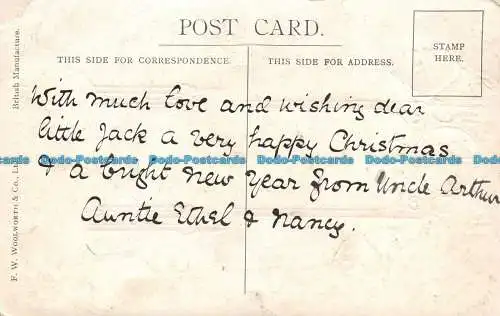 POST CARD.
THIS SIDE FOR CORRESPONDENCE.
THIS SIDE FOR ADDRESS.
STAMP
HERE.
With much love and wishing dear
little Jack a very happy Christmas
& a bright new Year from Uncle Arthur
Auntie Ethel & Nancy.
Dodo-Postcards Dodo-Postcards Dodo-Postcards Dodo-Postcards Dodo-Postcards
F. W. WOOLWORTH & CO., British Manufacture.